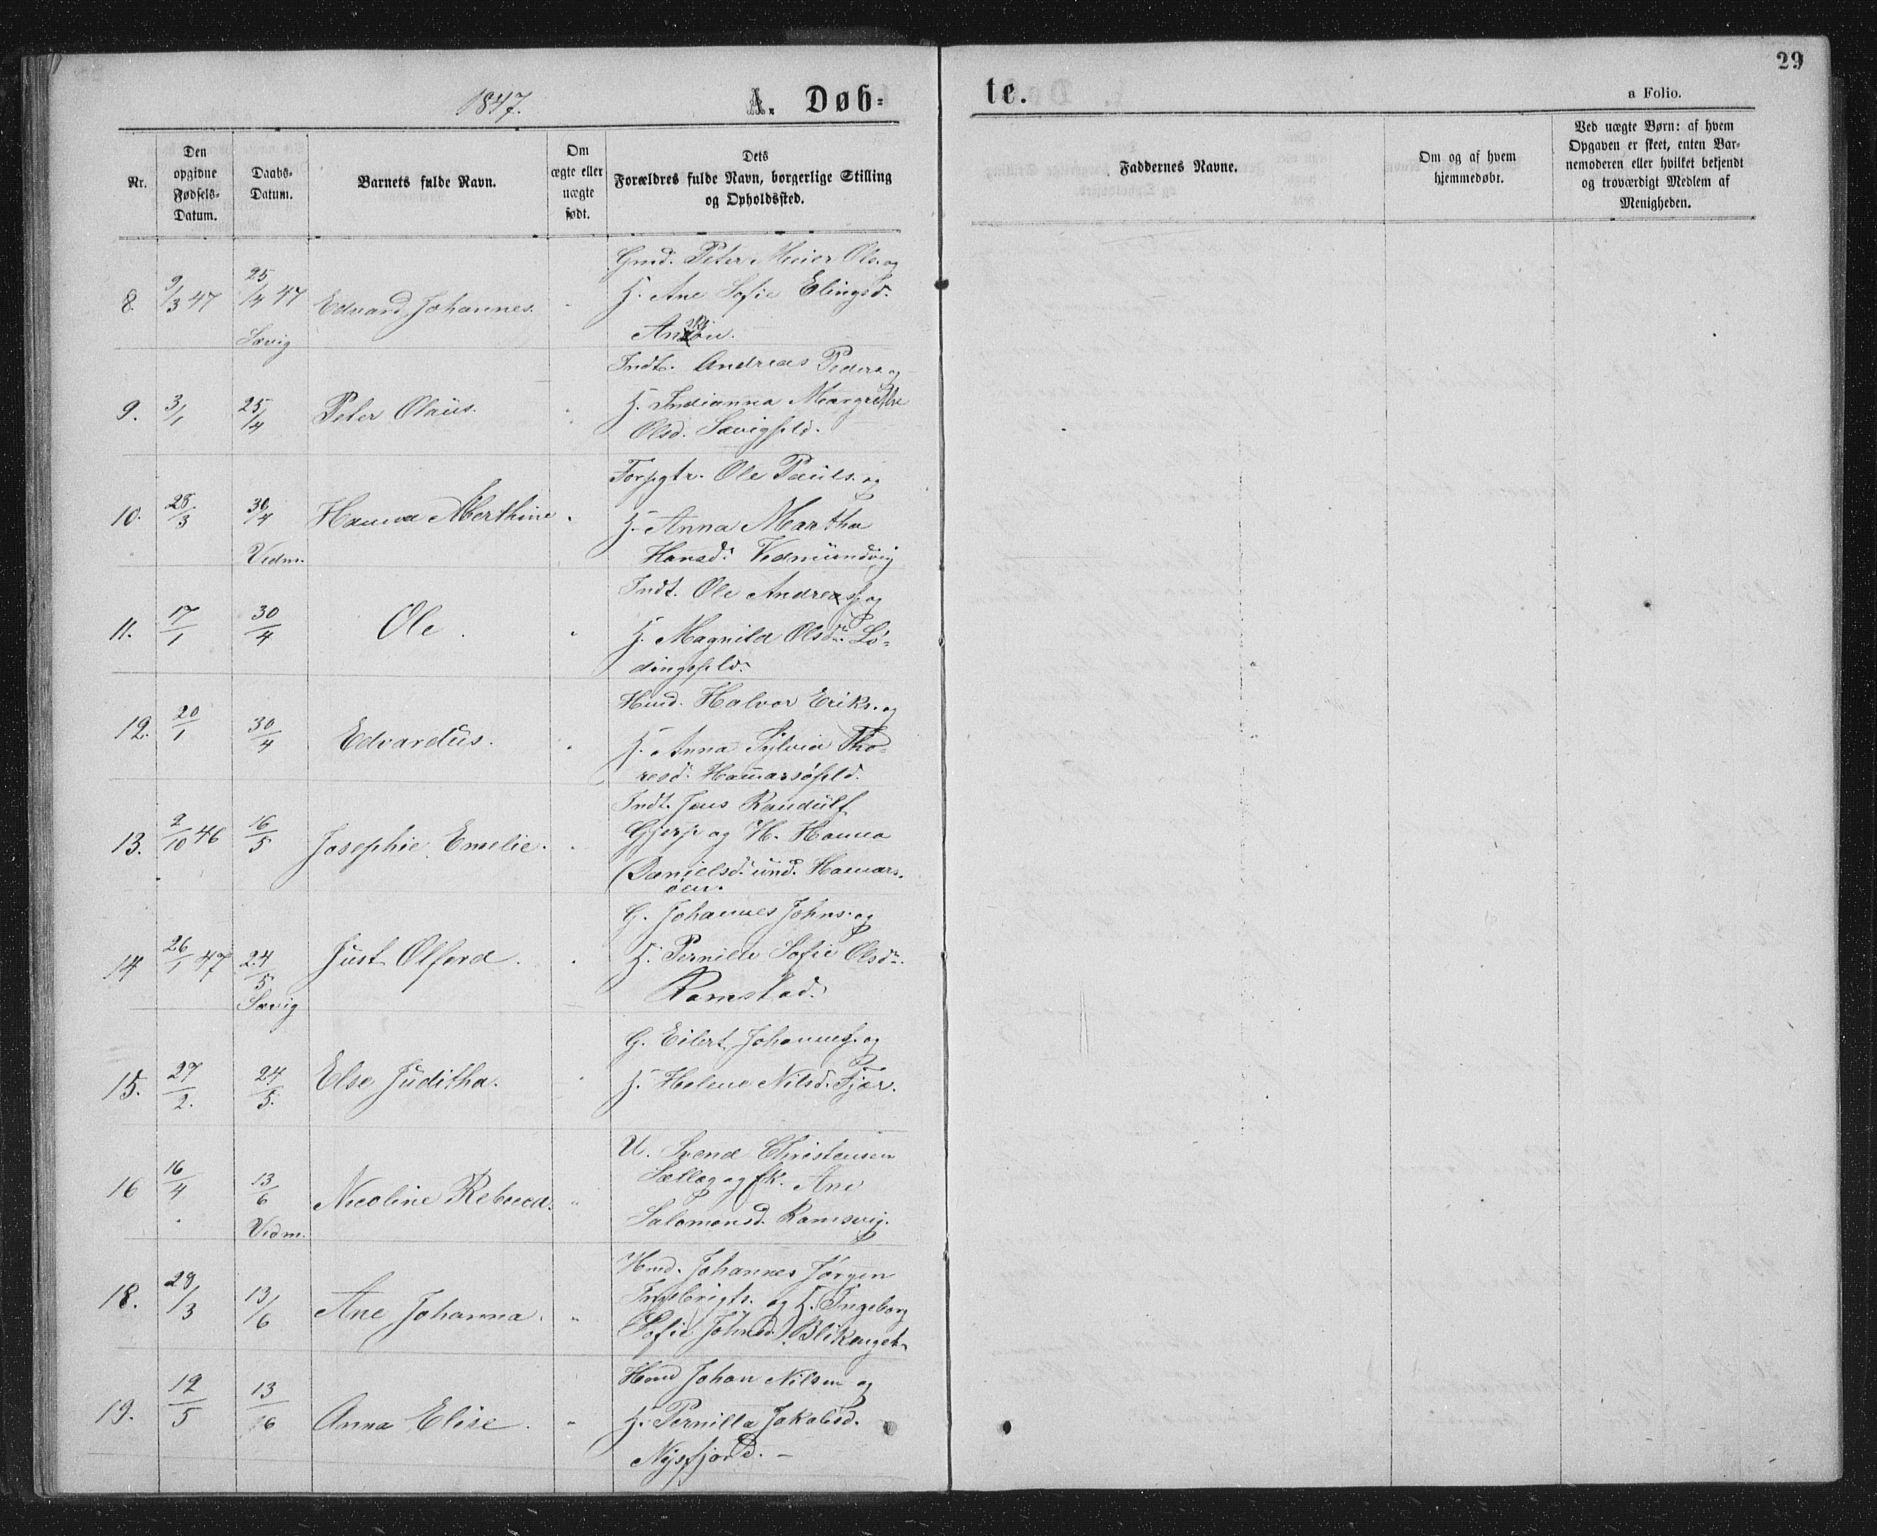 1847.
A. Døb-
te.
29
a Folio.
Nr.
Den
opgivne
Fødsels-
Datum.
Daabs-
Datum.
Barnets fulde Navn.
Om
ægte eller
uægte
født.
Dets
Forældres fulde Navn, borgerlige Stilling
og Opholdssted.
Faddernes Navne.
Om og af hvem
hjemmedøbt.
Ved uægte Børn: af hvem
Opgaven er skeet, enten Bar-
nemoderen eller hvilket bekjendt
og troværdigt Medlem af
Menigheden.
8. 9/3 47 25/4 47 Edvard Johannes.
Sævig
Gmd. Peter Meier Ols. og
H. Ane Sofie Elingsd.
9. 3/1 25/4 Peter Olaus.
Indt. Andreas Peders. og
H. Indianna Margrethe
Olsd. Sævigfjeld.
10. 28/3 30/4 Hanna Alberthine
Vidm.
Forpgtr. Ole Pauls. og
H. Anna Martha
Hansd. Vidmundvig
11. 17/1 30/4 Ole.
Indt. Ole Andreas. og
H. Magnild Olsdr. Lø-
dingsfjeld.
12. 20/1 30/4 Edvardus.
Hmd. Halvor Eriks. og
H. Anna Sylvia Tho-
resd. Hamarsøfjeld.
13. 2/10 46 16/5 Josephie Emelie.
Indt. Jens Randulf
Gjersp og H. Hanna
Danielsd. und. Hamars-
øen.
14 26/1 47 24/5 Just Olferd.
Sævig
G. Johannes Johns. og
H. Pernille Sofie Olsdr.
Ramstad.
15. 27/2. 24/5. Else Juditha.
G. Eilert Johannes. og
H. Helene Nilsd. Fjær.
16 16/4 13/6 Nicoline Rebecca.
Vidm.
U. Svend Christensen
Sællag og fk. Ane
Salomonsd. Ramsvig.
18. 29/3 13/6 Ane Johanna.
Hmd. Johannes Jørgen
Ingebrigts. og H. Ingeborg
Sofie Johnsd. Blikenget.
19. 12/5 13/6 Anna Elise.
Hmd Johan Nilsen og
H. Pernilla Jakobsd.
Nysfjord. —